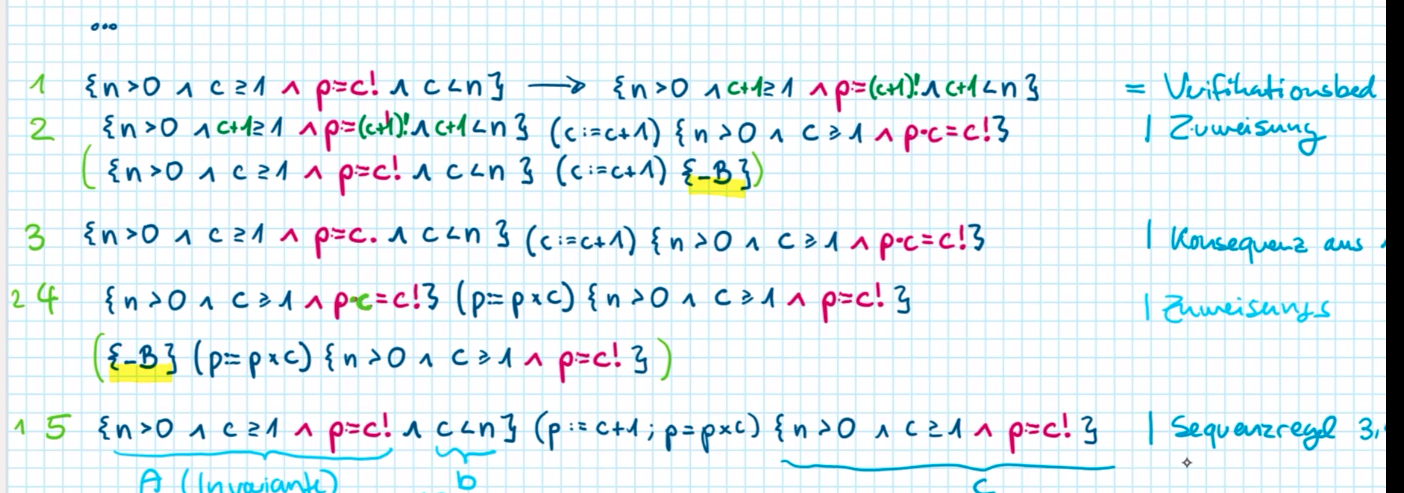 ...
1 {n>0 ∧ c≥1 ∧ p=c! ∧ c<n} → {n>0 ∧ c+1≥1 ∧ p=(c+1)! ∧ c+1<n} = Verifikationsbed
2 {n>0 ∧ c+1≥1 ∧ p=(c+1)! ∧ c+1<n} (c:=c+1) {n>0 ∧ c≥1 ∧ p·c=c!} | Zuweisung
({n>0 ∧ c≥1 ∧ p=c! ∧ c<n} (c:=c+1) {-B})
3 {n>0 ∧ c≥1 ∧ p=c. ∧ c<n} (c:=c+1) {n>0 ∧ c≥1 ∧ p·c=c!} | Konsequenz aus
2 4 {n>0 ∧ c≥1 ∧ p·c=c!} (p=p×c) {n>0 ∧ c≥1 ∧ p=c!} | Zuweisungs
({-B} (p=p×c) {n>0 ∧ c≥1 ∧ p=c!})
1 5 {n>0 ∧ c≥1 ∧ p=c! ∧ c<n} (p:=c+1; p=p×c) {n>0 ∧ c≥1 ∧ p=c!} | Sequenzregel 3,
A (Invariante) b C